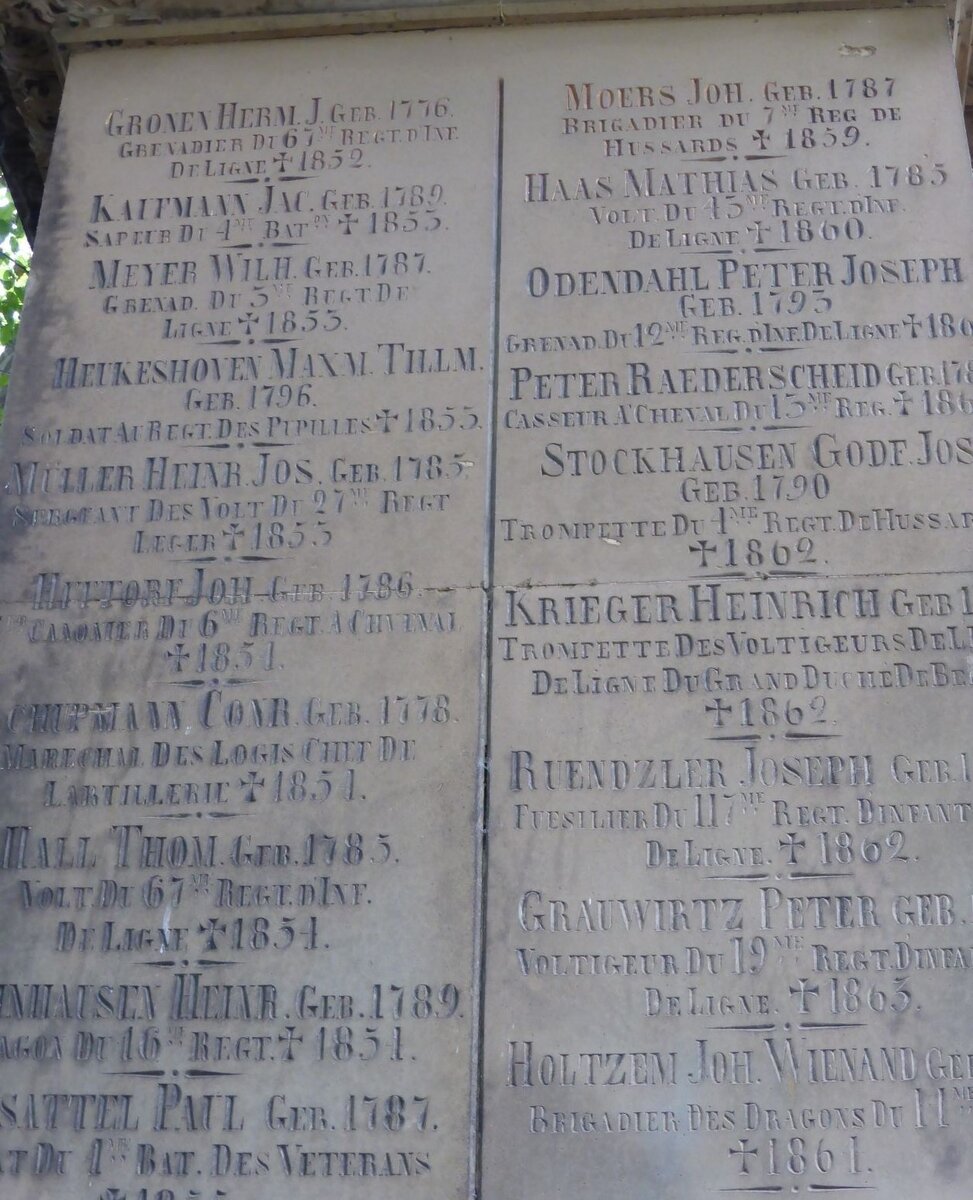 GRONEN HERM. J. GEB. 1776.
GRENADIER DU 67ME REGT. D'INF.
DE LIGNE ✝ 1852.
KAUFMANN JAC. GEB. 1789.
SAPEUR DU 4ME BATON ✝ 1853.
MEYER WILH. GEB. 1787.
GRENAD. DU 3ME REGT DE
LIGNE ✝ 1853.
HEUKESHOVEN MAXM. TILLM.
GEB. 1796.
SOLDAT AU REGT. DES PUPILLES ✝ 1853.
MÜLLER HEINR. JOS. GEB. 1785
SERGEANT DES VOLT DU 27ME REGT
LEGER ✝ 1853
HITTORF JOH. GEB. 1786.
CANONIER DU 6ME REGT. A CHVEVAL
✝ 1854.
CHUPMANN CONR. GEB. 1778.
MARECHAL DES LOGIS CHEF DE
L'ARTILLERIE ✝ 1854.
MALL THOM. GEB. 1785.
VOLT. DU 67ME REGT. D'INF.
DE LIGNE ✝ 1854.
NHAUSEN HEINR. GEB. 1789.
AGON DU 16ME REGT. ✝ 1854.
SATTEL PAUL GEB. 1787.
AT DU 4ME BAT. DES VETERANS
MOERS JOH. GEB. 1787
BRIGADIER DU 7ME REG DE
HUSSARDS ✝ 1859.
HAAS MATHIAS GEB. 1785
VOLT. DU 43ME REGT. D'INF.
DE LIGNE ✝ 1860.
ODENDAHL PETER JOSEPH
GEB. 1793
GRENAD. DU 12ME REG. D'INF. DE LIGNE ✝ 186
PETER RAEDERSCHEID GEB. 178
CASSEUR A'CHEVAL DU 13ME REG. ✝ 186
STOCKHAUSEN GODF. JOS
GEB. 1790
TROMPETTE DU 1ME REGT. DE HUSSAR
✝ 1862.
KRIEGER HEINRICH GEB 1
TROMPETTE DES VOLTIGEURS DE LI
DE LIGNE DU GRAND DUCHE DE BE
✝ 1862.
RUENDZLER JOSEPH GEB. 1
FUESILIER DU 117ME REGT. D'INFANT
DE LIGNE. ✝ 1862.
GRAUWIRTZ PETER GEB.
VOLTIGEUR DU 19ME REGT. D'INFAN
DE LIGNE. ✝ 1863.
HOLTZEM JOH. WIENAND GEB
BRIGADIER DES DRAGONS DU 11ME
✝ 1864.